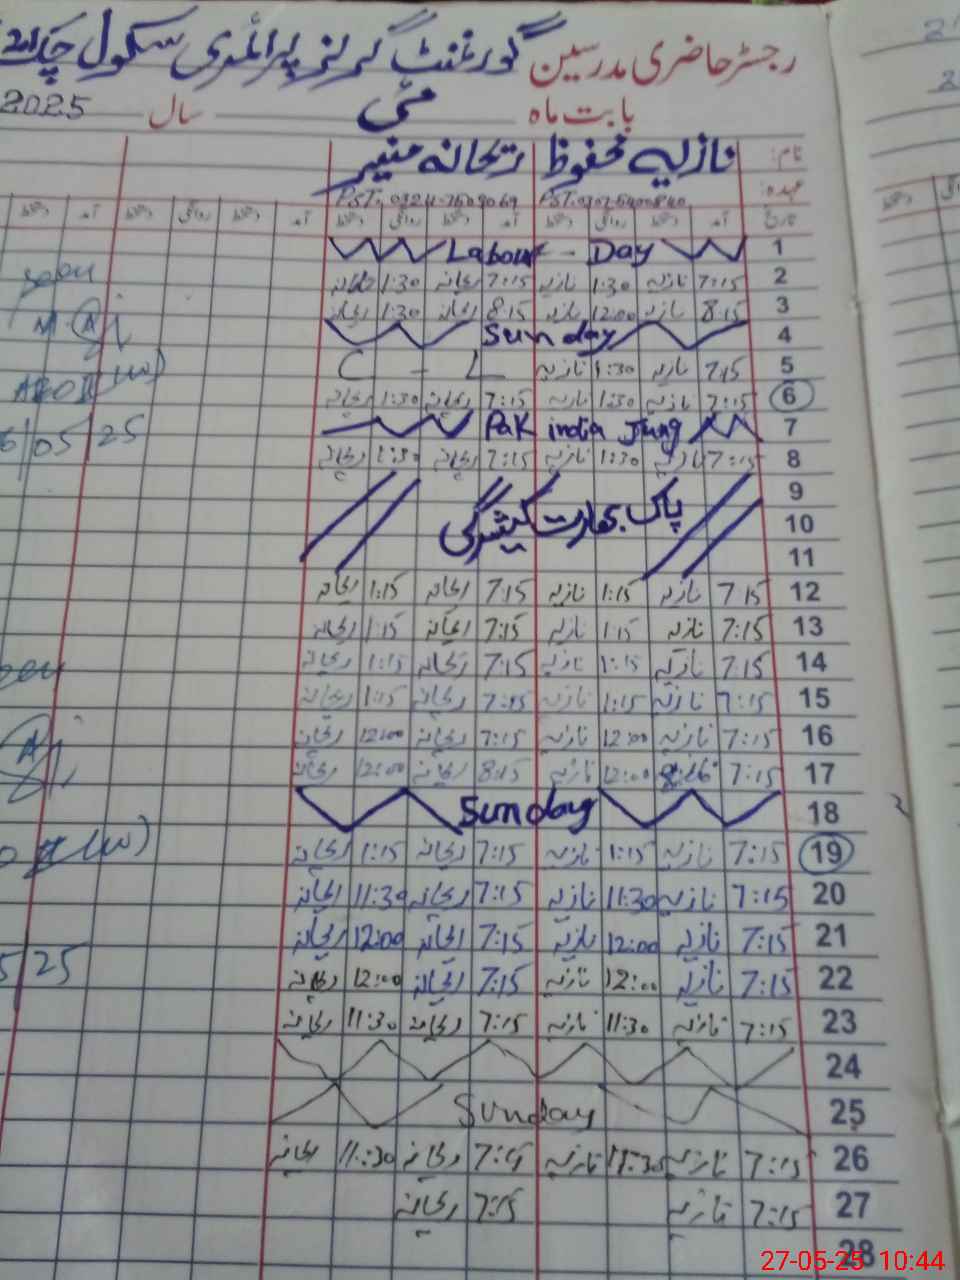 رجسٹر حاضری مدرسین گورنمنٹ گرلز پرائمری سکول چک
بابت ماہ مئی سال 2025
نام: نازلیہ محفوظ ریحانہ منیر
عہدہ:
تاریخ آمد دستخط روانگی دستخط آمد دستخط روانگی دستخط آمد دستخط روانگی دستخط آمد دستخط
1 Labour - Day
2 7:15 نازیہ 1:30 نازیہ 7:15 ریحانہ 1:30 ریحانہ
3 8:15 نازیہ 12:00 نازیہ 8:15 ریحانہ 1:30 ریحانہ
4 Sunday
5 7:15 نازیہ 1:30 نازیہ C - L
6 7:15 نازیہ 1:30 نازیہ 7:15 ریحانہ 1:30 ریحانہ
7 Pak india Jung
8 7:15 نازیہ 1:30 نازیہ 7:15 ریحانہ 1:30 ریحانہ
9
10 پاک بھارت کشیدگی
11
12 7:15 نازیہ 1:15 نازیہ 7:15 ریحانہ 1:15 ریحانہ
13 7:15 نازیہ 1:15 نازیہ 7:15 ریحانہ 1:15 ریحانہ
14 7:15 نازیہ 1:15 نازیہ 7:15 ریحانہ 1:15 ریحانہ
15 7:15 نازیہ 1:15 نازیہ 7:15 ریحانہ 1:15 ریحانہ
16 7:15 نازیہ 12:00 نازیہ 7:15 ریحانہ 12:00 ریحانہ
17 7:15 12:00 نازیہ 8:15 ریحانہ 12:00 ریحانہ
18 Sunday
19 7:15 نازیہ 1:15 نازیہ 7:15 ریحانہ 1:15 ریحانہ
20 7:15 نازیہ 11:30 نازیہ 7:15 ریحانہ 11:30 ریحانہ
21 7:15 نازیہ 12:00 نازیہ 7:15 ریحانہ 12:00 ریحانہ
22 7:15 نازیہ 12:00 نازیہ 7:15 ریحانہ 12:00 ریحانہ
23 7:15 نازیہ 11:30 نازیہ 7:15 ریحانہ 11:30 ریحانہ
24
25 Sunday
26 7:15 نازیہ 11:30 نازیہ 7:15 ریحانہ 11:30 ریحانہ
27 7:15 نازیہ 7:15 ریحانہ
28
6/05/25
5/25
27-05-25 10:44